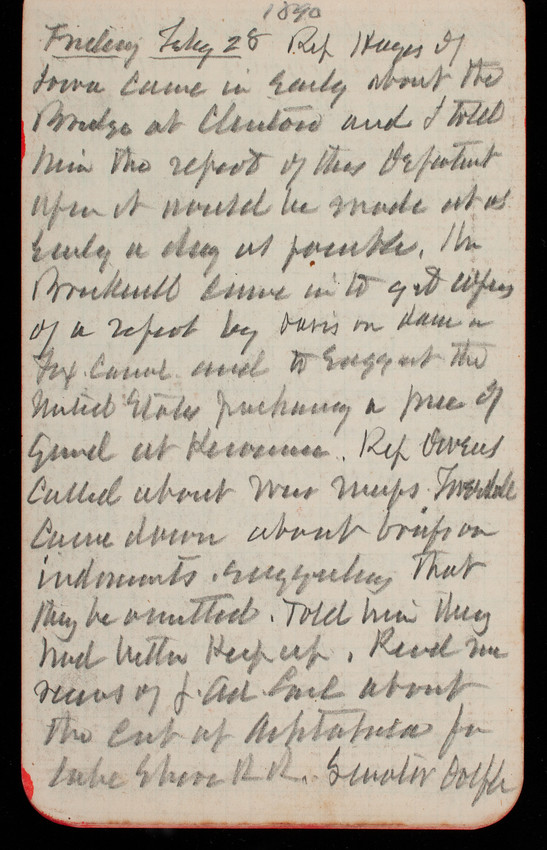 1890
Friday Feby 28 Rep Hayes of
Iowa came in early about the
Bridge at Clinton and I told
him the report of this Department
upon it would be made at as
early a day as possible. Mr
Brickwell came in to get copies
of a report by Davis on dam in
Fox Canal and to suggest the
United States purchasing a piece of
Gravel at Kewaunee. Rep Owens
called about War maps Tweedale
came down about briefs on
indorsements suggesting that
they be omitted. Told him they
had better keep up. Read me
views of J. Ad Genl about
the cut at Ashtabula for
Lake Shore R R. Senator Dolph